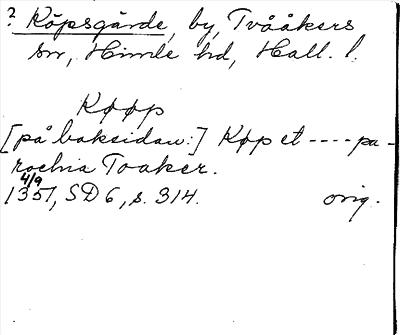 ? Köpsgårde, by, Tvååkers
sn, Himle hd, Hall. l.
Køøp
[på baksidan:] Køp et ---- pa-
rochia Toaker.
4/9
1351, SD 6, s. 314. orig.